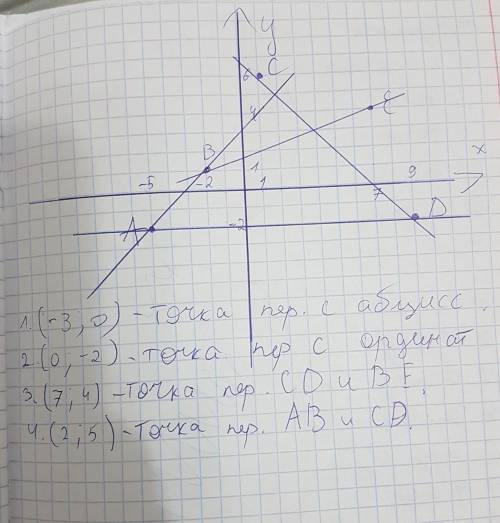 y
6 C
4 E
B
x
1
-5 -2 1 7 9
A -2 D
1. (-3; 0) - точка пер. с абцисс.
2. (0, -2) - точка пер с ординат
3. (7; 4) - точка пер. CD и BE.
4. (2; 5) - точка пер. AB и CD.